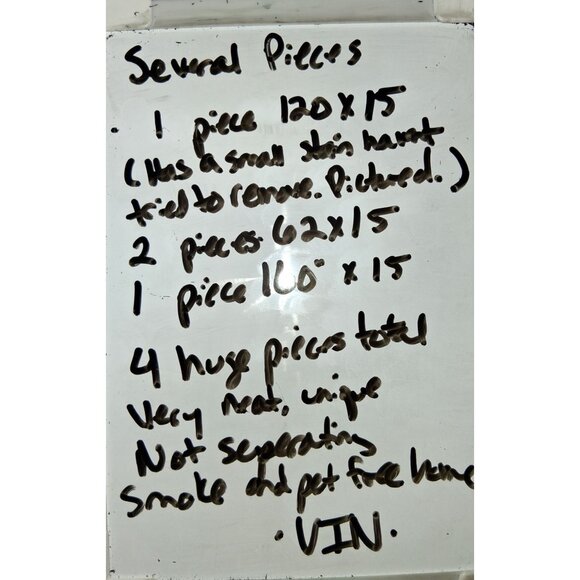 Several Pieces
1 piece 120 x 15
(Has a small stain havnt
tried to remove. Pictured.)
2 pieces 62x15
1 piece 160" x 15
4 huge pieces total
Very neat, unique
Not seperating
Smoke and pet free home
·VIN·